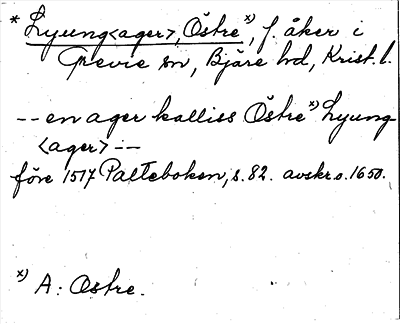 * Lyung<ager>, Östre x), f. åker i
Grevie sn, Bjäre hd, Krist. l.
-- en ager kalliss Östre x) Lyung
<ager> --
före 1517 Palteboken, s. 82. avskr. o. 1650.
x) A: Ostre.